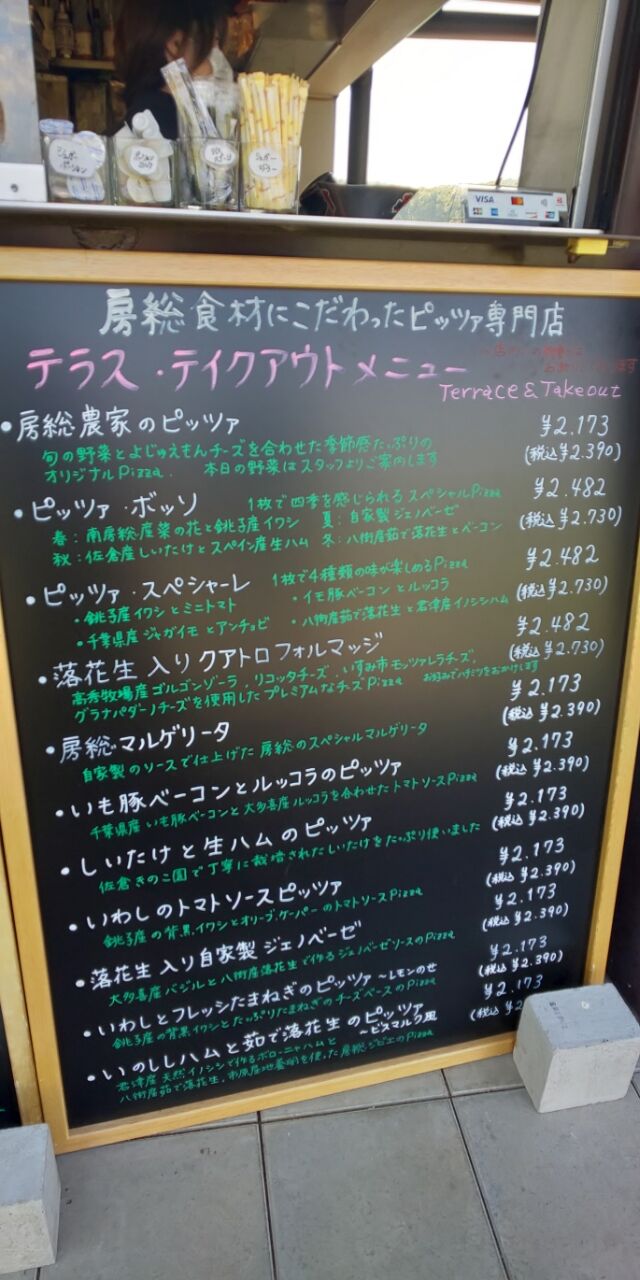 シュガー
VISA
房総食材にこだわったピッツァ専門店
テラス・テイクアウトメニュー
Terrace & Takeout
・房総農家のピッツァ ¥2.173
旬の野菜とよじゅえもんチーズを合わせた季節感たっぷりの (税込¥2.390)
オリジナルPizza. 本日の野菜はスタッフよりご案内します
・ピッツァ・ボッソ 1枚で四季を感じられるスペシャルPizza ¥2.482
春：南房総産菜の花と銚子産イワシ 夏：自家製ジェノベーゼ (税込¥2.730)
秋：佐倉産しいたけとスペイン産生ハム 冬：八街産茹で落花生とベーコン
・ピッツァ・スペシャーレ 1枚で4種類の味が楽しめるPizza ¥2.482
・銚子産イワシとミニトマト ・イモ豚ベーコンとルッコラ (税込¥2.730)
・千葉県産ジャガイモとアンチョビ ・八街産茹で落花生と君津産イノシシハム
・落花生入りクアトロフォルマッジ ¥2.482
高秀牧場産ゴルゴンゾーラ、リコッタチーズ、いすみ市モッツァレラチーズ、 (税込¥2.730)
グラナパダーノチーズを使用したプレミアムなチーズPizza お好みでハチミツをおかけします
・房総マルゲリータ ¥2.173
自家製のソースで仕上げた房総のスペシャルマルゲリータ (税込¥2.390)
・いも豚ベーコンとルッコラのピッツァ ¥2.173
千葉県産いも豚ベーコンと大多喜産ルッコラを合わせたトマトソースPizza (税込¥2.390)
・しいたけと生ハムのピッツァ ¥2.173
佐倉きのこ園で丁寧に栽培されたしいたけをたっぷり使いました (税込¥2.390)
・いわしのトマトソースピッツァ ¥2.173
銚子産の背黒イワシとオリーブ、ケーパーのトマトソースPizza (税込¥2.390)
・落花生入り自家製ジェノベーゼ ¥2.173
大多喜産バジルと八街産落花生で作るジェノベーゼソースのPizza (税込¥2.390)
・いわしとフレッシュたまねぎのピッツァ〜レモンのせ ¥2.173
銚子産の背黒イワシとたっぷりたまねぎのチーズベースのPizza (税込¥2.390)
・いのししハムと茹で落花生のピッツァ ¥2.173
〜ビスマルク風
君津産天然イノシシで作るボローニャハムと (税込¥2
八街産茹で落花生、市原産地養卵を使った房総ジビエのPizza